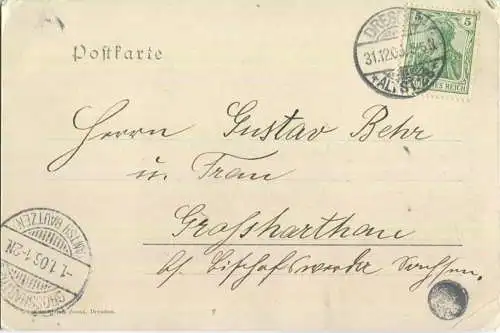 Postkarte
DRES
31.12.05. 5-6.N
ALTST.
5
DEUTSCHES REICH
Herrn Gustav Behr
u. Frau
Grossharthau
b/ Bischofswerda Sachsen.
GROSSHARTHAU
(AMTSH. BAUTZEN)
-1.1.06. 1-2N.
Dresden.